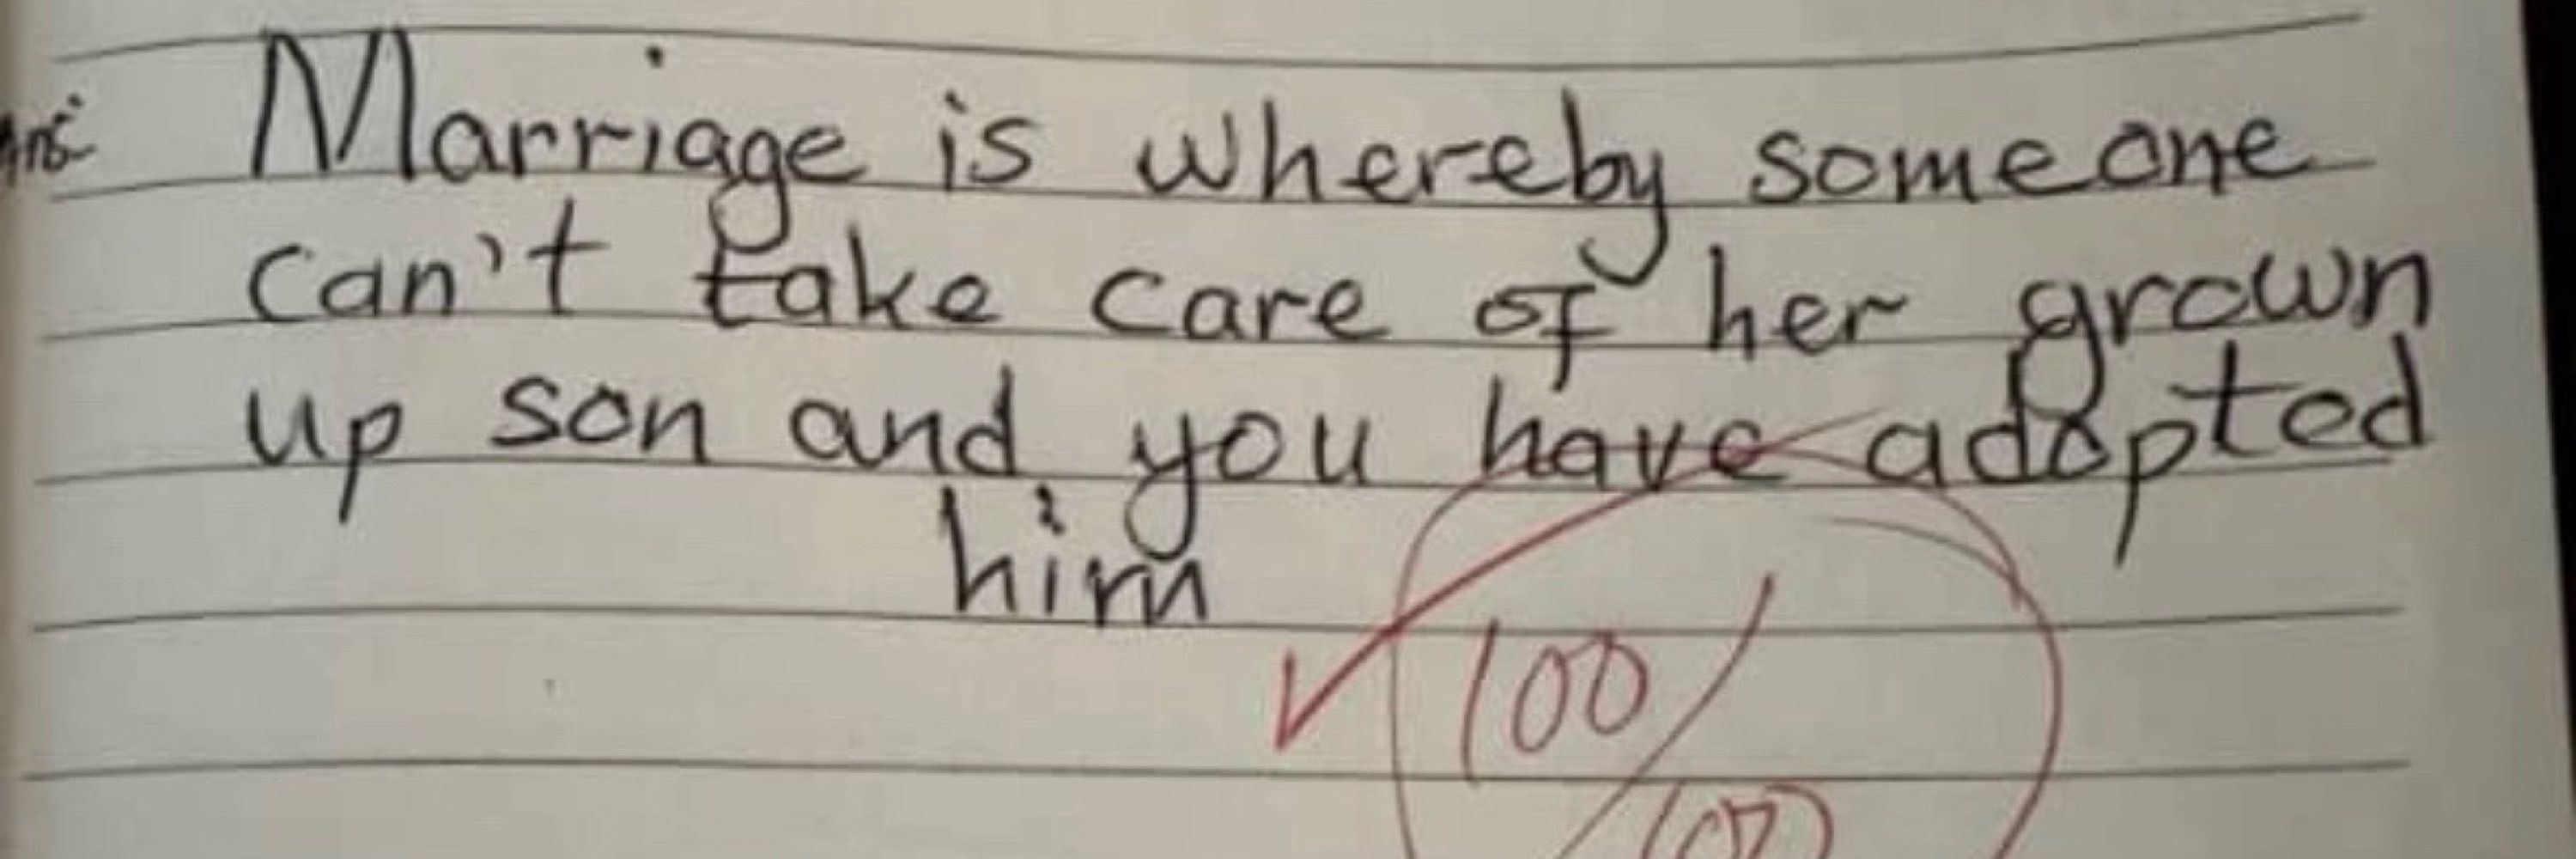 Ans Marriage is whereby someone
can't take care of her grown
up son and you have adopted
him
100/
100